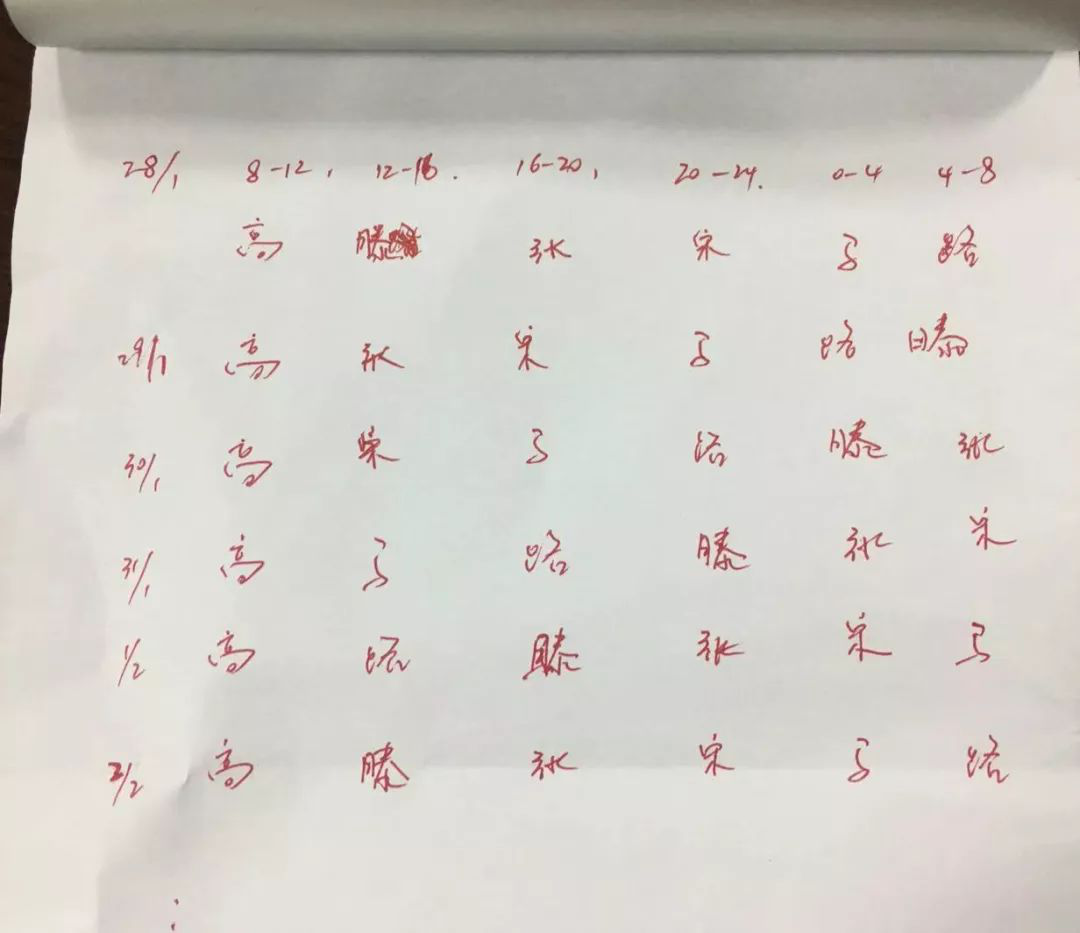 28/1 8-12, 12-16. 16-20, 20-24. 0-4 4-8
高 滕 张 宋 马 路
29/1 高 张 宋 马 路 滕
30/1 高 宋 马 路 滕 张
31/1 高 马 路 滕 张 宋
1/2 高 路 滕 张 宋 马
2/2 高 滕 张 宋 马 路
: